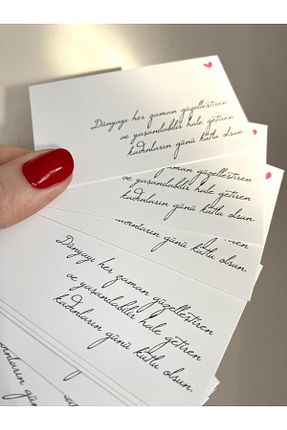 Dünyayı her zaman güzelleştiren
ve yaşanılabilir hale getiren
kadınların günü kutlu olsun.
ve yaşanılabilir hale getiren
kadınların günü kutlu olsun.
kadınların günü kutlu olsun.
Dünyayı her zaman güzelleştiren
ve yaşanılabilir hale getiren
kadınların günü kutlu olsun.